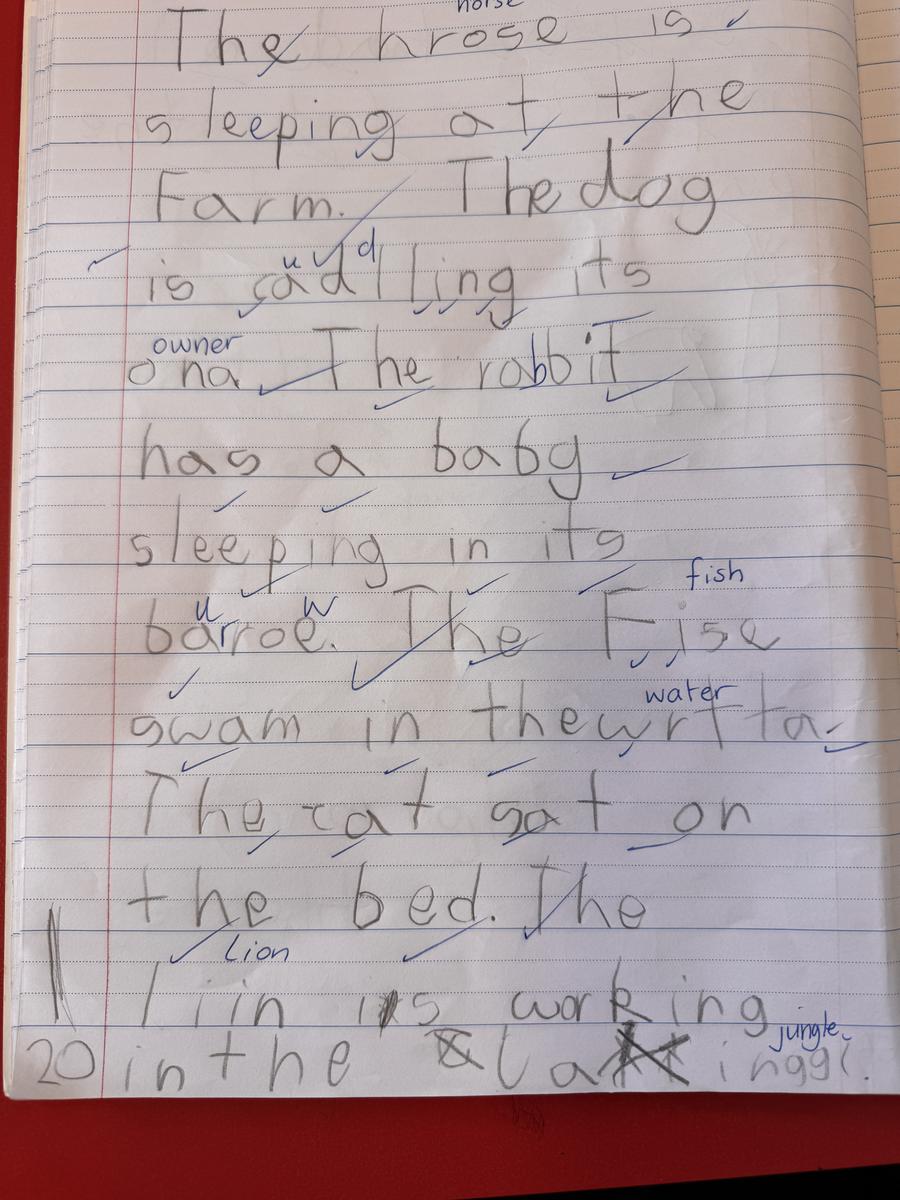 horse
The hrose is
sleeping at the
Farm. The dog
is cadlling its
u d
owner
ona The rabbit
has a baby
sleeping in its
u w fish
barroe. The Fise
water
swam in the wrtta
The cat sat on
the bed. The
Lion
liin is working
jungle.
20 in the la inggl.